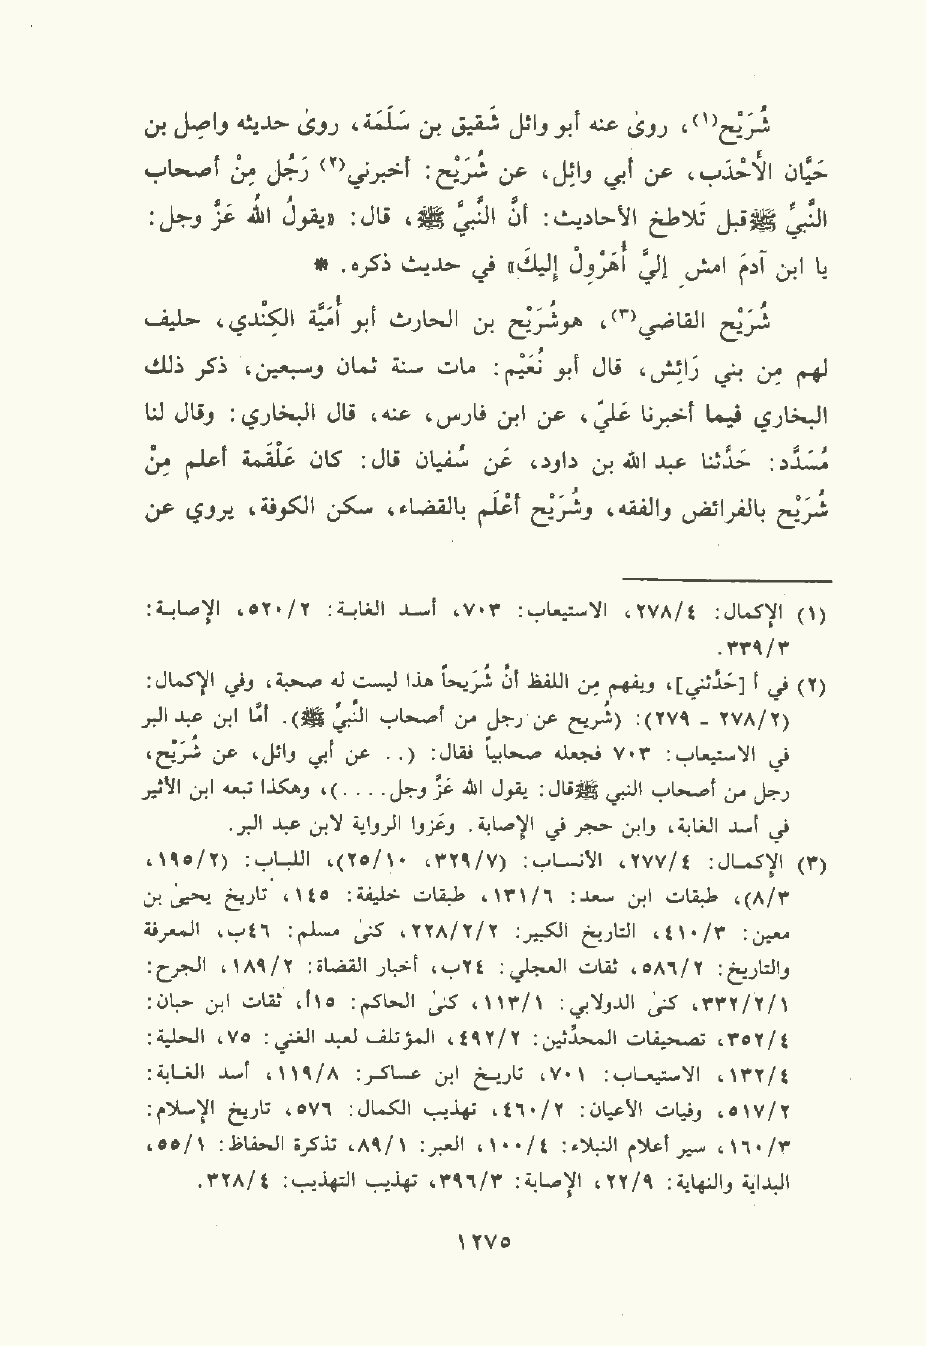 شُرَيْح(١)، روىٰ عنه أبو وائل شَقيق بن سَلَمَة، روىٰ حديثه واصِل بن
حَيَّان الأَحْذب، عن أبي وائِل، عن شُرَيْح: أخبرني(٢) رَجُل مِنْ أصحاب
النبيِّ ﷺقبل تَلاطخ الأحاديث: أنَّ النَّبيَّ ﷺ، قال: «يقولُ اللهُ عَزَّ وجل:
يا ابن آدمَ امشِ إليَّ أُهَرْوِلْ إليكَ» في حديث ذكره. *
شُرَيْح القاضي(٣)، هوشُرَيْح بن الحارث أبو أُمَيَّة الكِنْدي، حليف
لهم مِن بني رَائِش، قال أبو نُعَيْم: مات سنة ثمان وسبعين، ذكر ذلك
البخاري فيما أخبرنا عَليّ، عن ابن فارس، عنه، قال البخاري: وقال لنا
مُسَدَّد: حَدَّثنا عبد الله بن داود، عَن سُفيان قال: كان عَلْقَمة أعلم مِنْ
شُرَيْح بالفرائض والفقه، وشُرَيْح أعْلَم بالقضاء، سكن الكوفة، يروي عن
(١) الإكمال: ٢٧٨/٤، الاستيعاب: ٧٠٣، أسد الغابة: ٥٢٠/٢، الإصابة:
٣٣٩/٣.
(٢) في أ [حَدَّثني]، ويفهم من اللفظ أنْ شُرَيحاً هذا ليست له صحبة، وفي الإكمال:
(٢٧٨/٢ - ٢٧٩): (شُريح عن رجل من أصحاب النَّبيِّ ﷺ). أمَّا ابن عبد البر
في الاستيعاب: ٧٠٣ فجعله صحابياً فقال: (.. عن أبي وائل، عن شُرَيْح،
رجل من أصحاب النبي ﷺقال: يقول الله عَزَّ وجل....)، وهكذا تبعه ابن الأثير
في أسد الغابة، وابن حجر في الإصابة. وعَزوا الرواية لابن عبد البر.
(٣) الإكمال: ٢٧٧/٤، الأنساب: (٣٢٩/٧، ٢٥/١٠)، اللباب: (١٩٥/٢،
٨/٣)، طبقات ابن سعد: ١٣١/٦، طبقات خليفة: ١٤٥، تاريخ يحيىٰ بن
معين: ٤١٠/٣، التاريخ الكبير: ٢٢٨/٢/٢، كنىٰ مسلم: ٤٦ب، المعرفة
والتاريخ: ٥٨٦/٢، ثقات العجلي: ٢٤ب، أخبار القضاة: ١٨٩/٢، الجرح:
٣٣٢/٢/١، كنىٰ الدولابي: ١١٣/١، كنىٰ الحاكم: ١٥أ، ثقات ابن حبان:
٣٥٢/٤، تصحيفات المحدِّثين: ٤٩٢/٢، المؤتلف لعبد الغني: ٧٥، الحلية:
١٣٢/٤، الاستيعاب: ٧٠١، تاريخ ابن عساكر: ١١٩/٨، أسد الغابة:
٥١٧/٢، وفيات الأعيان: ٤٦٠/٢، تهذيب الكمال: ٥٧٦، تاريخ الإسلام:
١٦٠/٣، سير أعلام النبلاء: ١٠٠/٤، العبر: ٨٩/١، تذكرة الحفاظ: ٥٥/١،
البداية والنهاية: ٢٢/٩، الإصابة: ٣٩٦/٣، تهذيب التهذيب: ٣٢٨/٤.
١٢٧٥